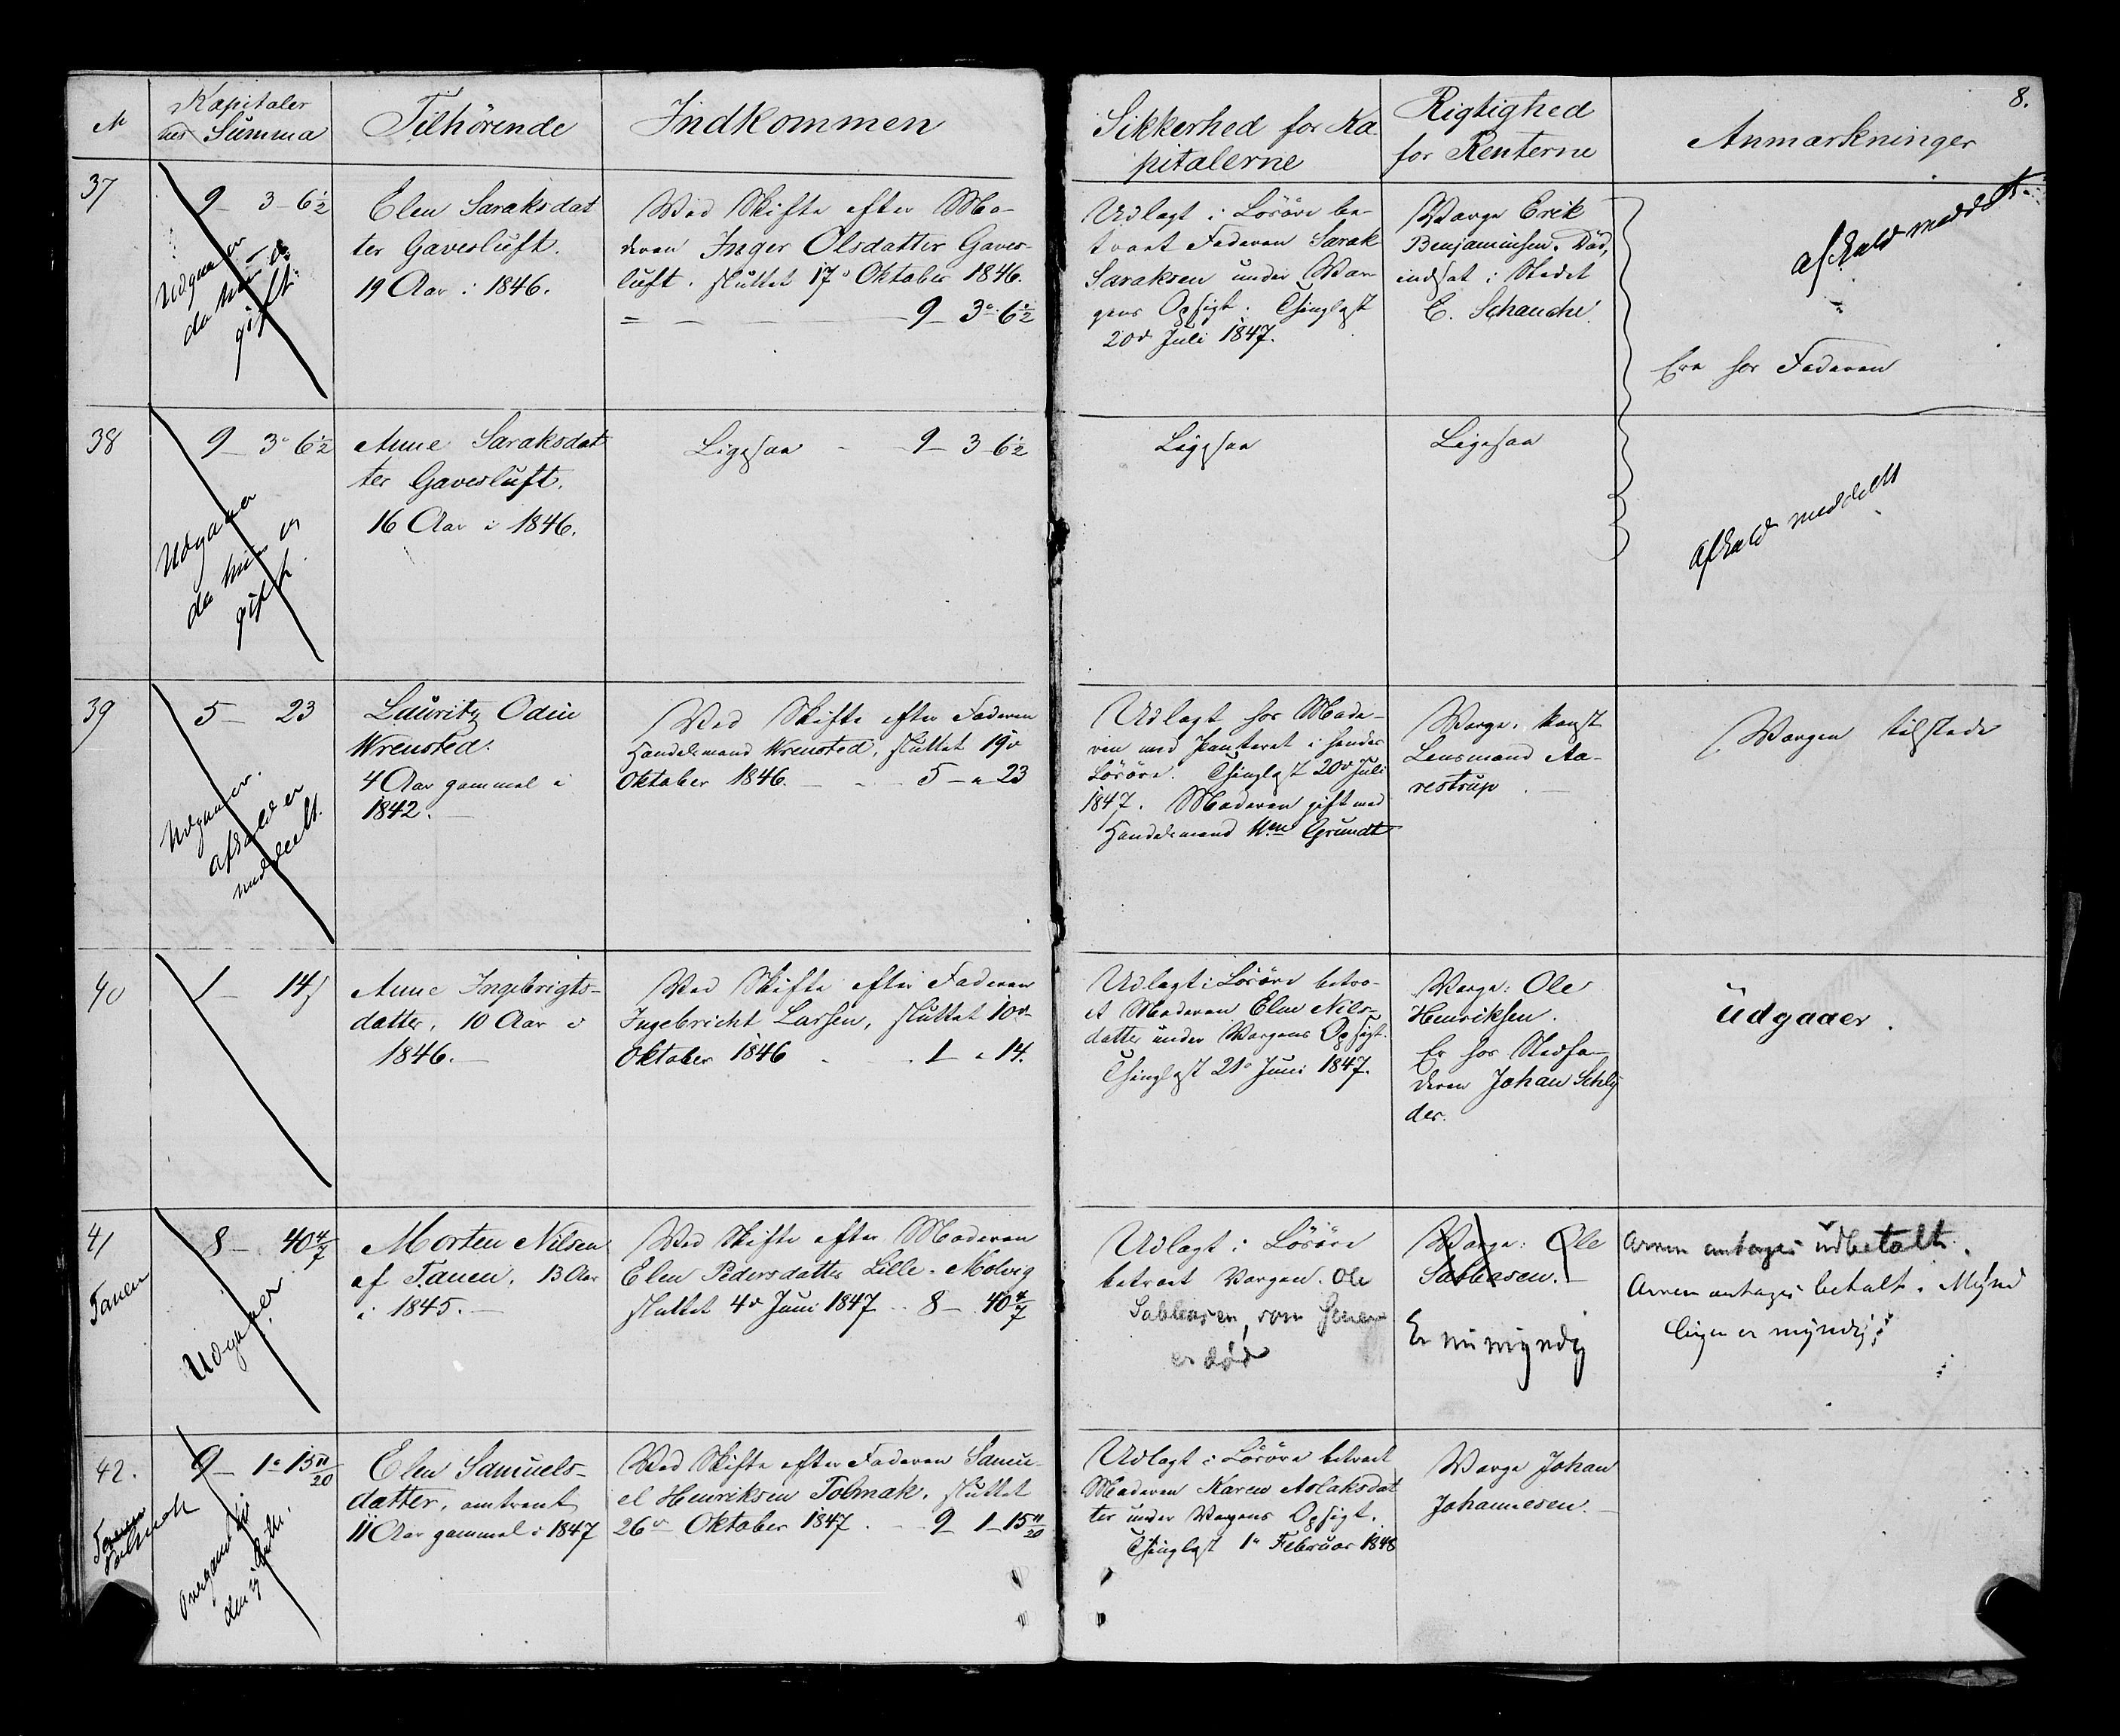 8.
№
Kapitaler
nes Summa
Tilhörende
Indkommen
Sikkerhed for Ka
pitalerne
Rigtighed
for Renterne
Anmærkninger
37
9 — 3 — 6½
Udgaaer
da hun er
gift
Elen Saraksdat
ter Gavesluft.
19 Aar i 1846.
Ved Skifte efter Mo-
deren Inger Olsdatter Gaves-
luft, sluttet 17de Oktober 1846.
9 — 3 — 6½
Udlagt i Lösöre be-
troet Faderen Sarak
Saraksen under Vær-
gens Opsigt. Thinglyst
20de Juli 1847.
Værge Erik
Benjaminsen. Död,
indsat i Stedet
C. Schanche
afkald meddelt
Ere hos Faderen
38
9 — 3 — 6½
Udgaaer
da hun er
gift.
Anne Saraksdat
ter Gavesluft.
16 Aar i 1846.
Ligesaa — 9 — 3 — 6½
Ligesaa
Ligesaa
Afkald meddelt
39
5 — 23
Udgaaer.
afkald er
meddelt.
Lauritz Odin
Wrensted.
4 Aar gammel i
1842.
Ved Skifte efter Faderen
Handelsmand Wrensted, sluttet 19de
Oktober 1846. — 5 — " 23
Udlagt hos Mode-
ren med Panteret i hendes
Lösöre. Thinglyst 20de Juli
1847. Moderen gift med
Handelsmand Wm Grundt
Værge, konst.
Lensmand Aa-
restrup
Værgen tilstede
40
1 — 14
Anne Ingebrigts-
datter, 10 Aar i
1846.
Ved Skifte efter Faderen
Ingebricht Larsen, sluttet 10de
Oktober 1846 1 " 14.
Udlagt i Lösöre betro-
et Moderen Elen Nils-
datter under Værgens Opsigt.
Thinglyst 21de Juni 1847.
Værge: Ole
Henriksen.
Er hos Stedfa-
deren Johan Schly
der.
Udgaaer.
41
Tanen
8 — 40 4/7
Udgaaer
Morten Nilsen
af Tanen, 13 Aar
i 1845.
Ved Skifte efter Moderen
Elen Pedersdatter Lille-Molvig
sluttet 4de Juni 1847 8 — 40 4/7
Udlagt i Lösöre
betroet Værgen Ole
Sabbasen, som
er död
Værge: Ole
Sabbasen.
Er nu myndig
Arven antages udbetalt.
Arven antages betalt. Mynd
lingen er myndig
42.
Tanen
9 — 1 — 15 11/20
Elen Samuels-
datter, omtrent
11 Aar gammel i 1847
Ved Skifte efter Faderen Samu-
el Henriksen Tolmak, sluttet
26de Oktober 1847. 9 1 — 15 11/20
Udlagt i Lösöre betroet
Moderen Karen Aslaksdat
ter under Værgens Opsigt.
Thinglyst 1ste Februar 1848
Værge Johan
Johannesen.